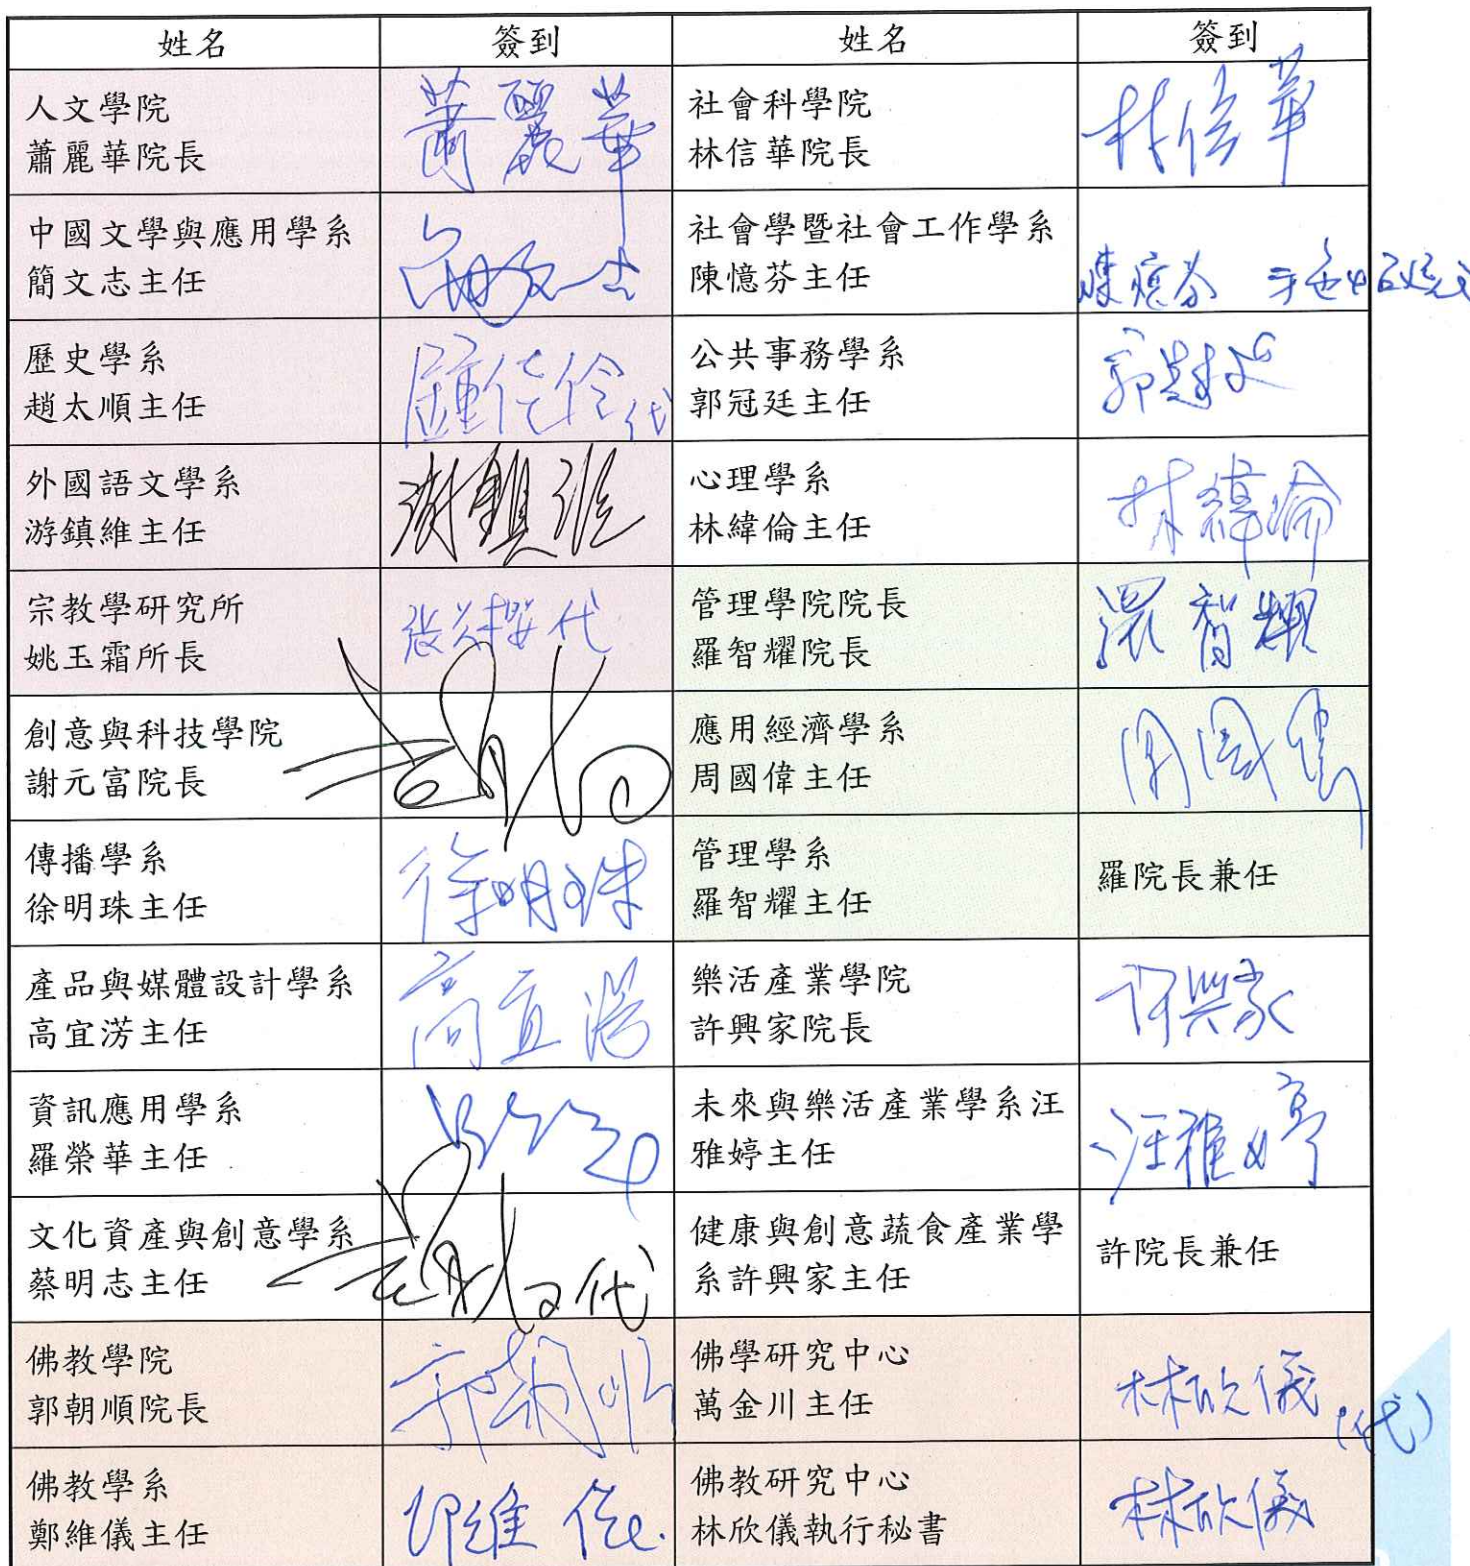 姓名 簽到 姓名 簽到
人文學院
蕭麗華院長
蕭麗華
社會科學院
林信華院長
林信華
中國文學與應用學系
簡文志主任
社會學暨社會工作學系
陳憶芬主任
陳憶芬
歷史學系
趙太順主任
代
公共事務學系
郭冠廷主任
外國語文學系
游鎮維主任
心理學系
林緯倫主任
林緯倫
宗教學研究所
姚玉霜所長
代
管理學院院長
羅智耀院長
羅智耀
創意與科技學院
謝元富院長
應用經濟學系
周國偉主任
周國偉
傳播學系
徐明珠主任
徐明珠
管理學系
羅智耀主任
羅院長兼任
產品與媒體設計學系
高宜淓主任
高宜淓
樂活產業學院
許興家院長
許興家
資訊應用學系
羅榮華主任
未來與樂活產業學系汪
雅婷主任
汪雅婷
文化資產與創意學系
蔡明志主任
代
健康與創意蔬食產業學
系許興家主任
許院長兼任
佛教學院
郭朝順院長
郭朝順
佛學研究中心
萬金川主任
林欣儀(代)
佛教學系
鄭維儀主任
鄭維儀
佛教研究中心
林欣儀執行秘書
林欣儀